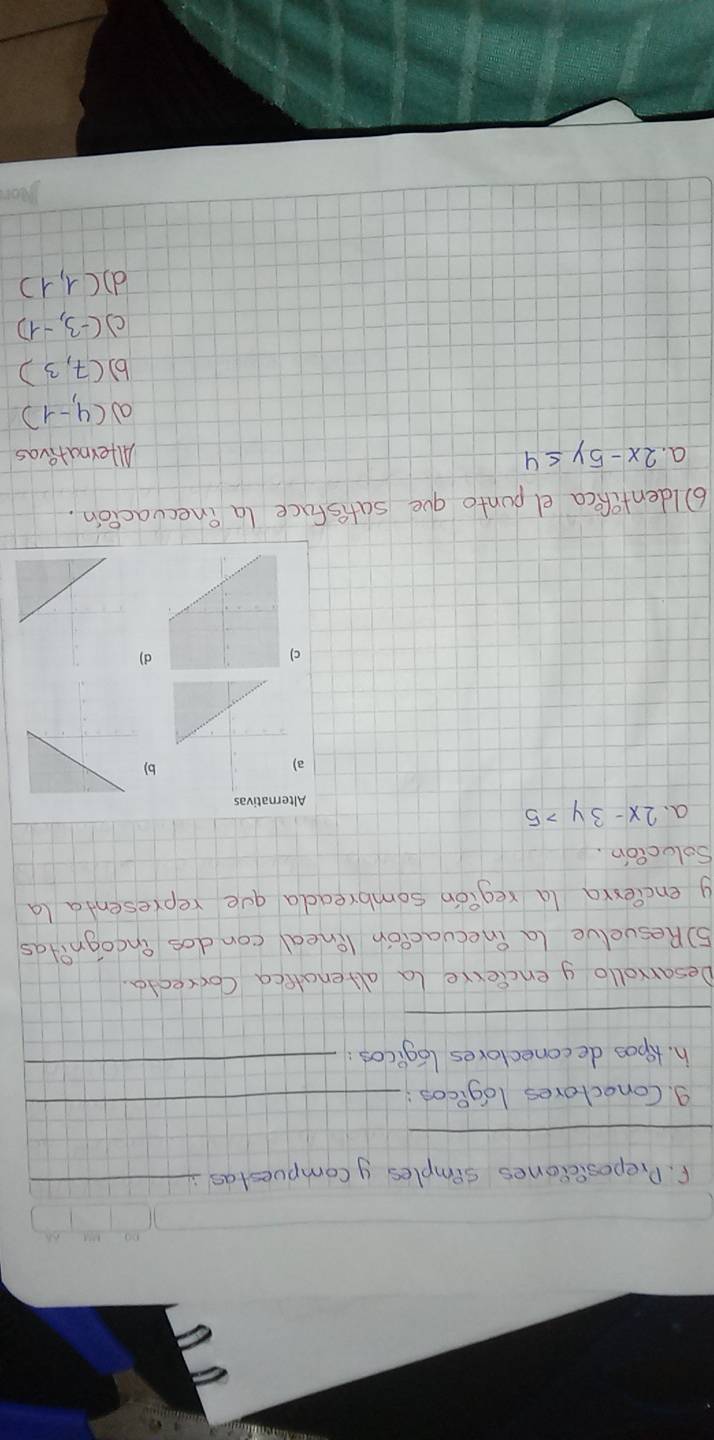 DD MM AA
F. Preposiciones simples y compuestas :
g. Conectores lógicos :
h. tipos de conectores lógicos :
Desarrollo y encierre la altenatica Correcta.
5) Resuelve la inecuación lineal con dos incógnitas
y encierra la región sombreada que representa la
Solución.
a. 2x - 3y > 5
Alternativas
a)
b)
c)
d)
6) Identifica el punto que satisface la inecuación.
a. 2x - 5y ≤ 4
Alternativas
a) (4, -1)
b) (7, 3)
c) (-3, -1)
d) (1, 1)
Nor